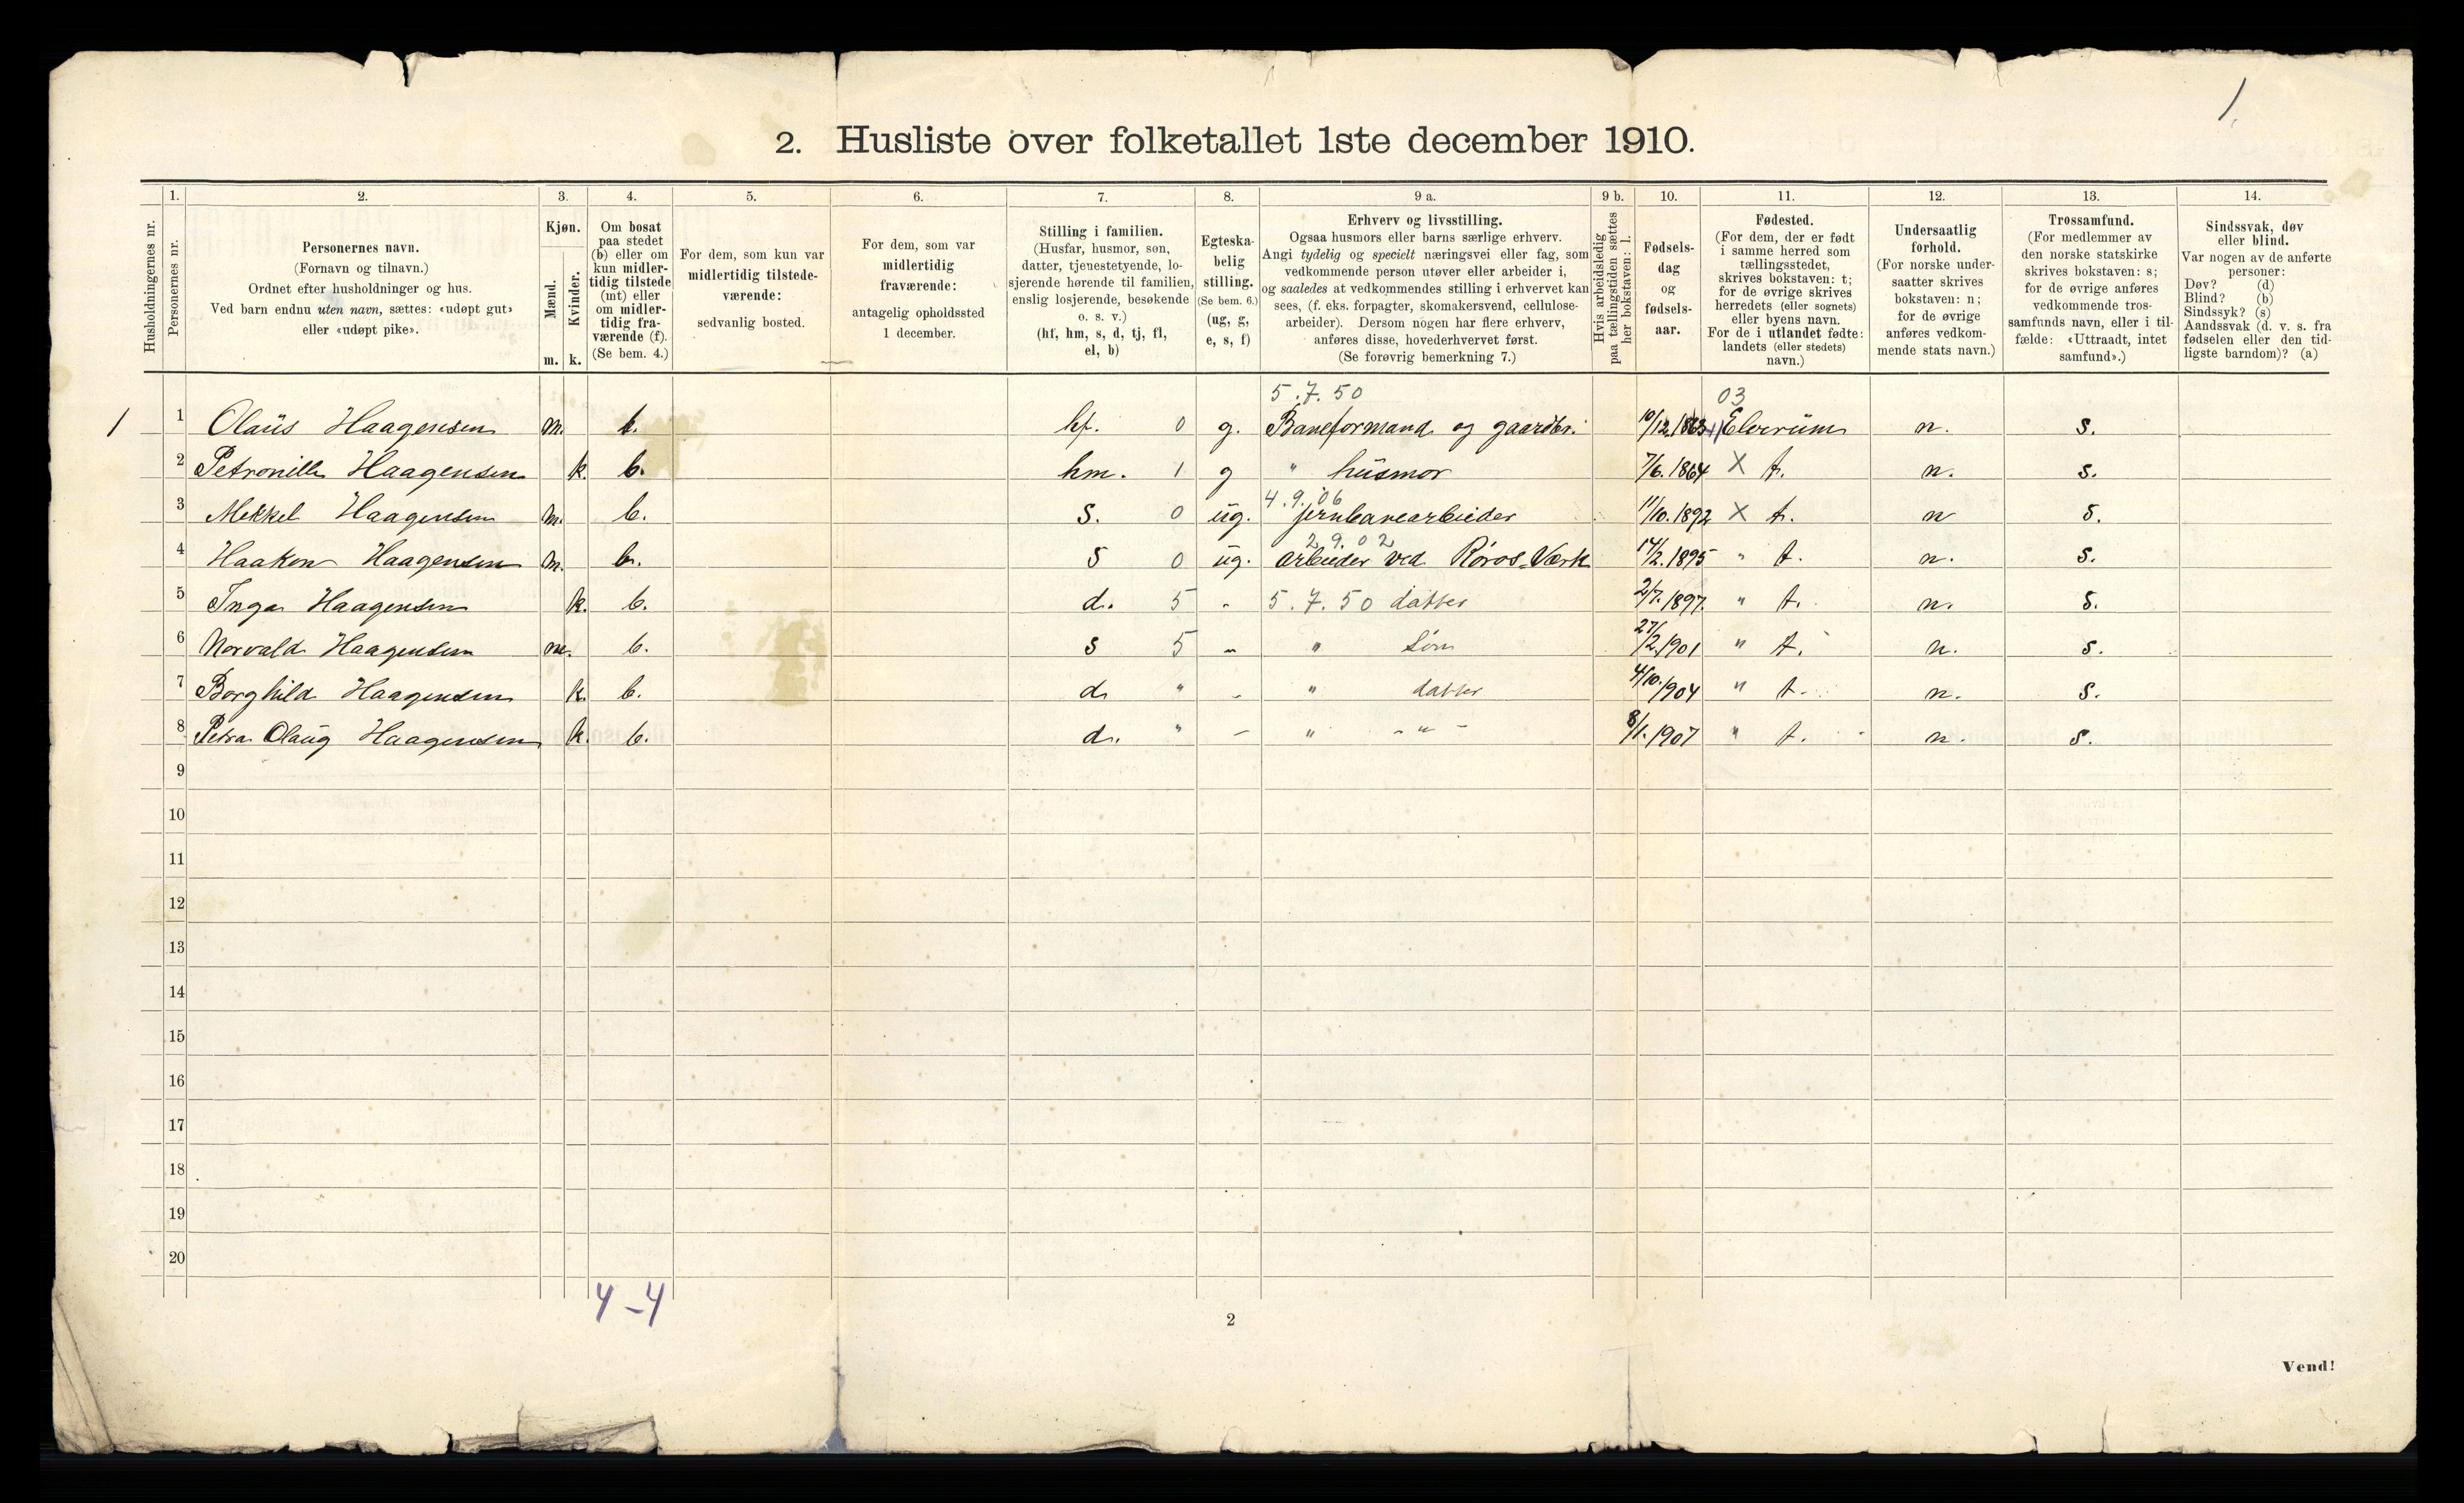 1.
2. Husliste over folketallet 1ste december 1910.
Husholdningernes nr.
1.
Personernes nr.
2.
Personernes navn.
(Fornavn og tilnavn.)
Ordnet efter husholdninger og hus.
Ved barn endnu uten navn, sættes: «udøpt gut»
eller «udøpt pike».
3.
Kjøn.
Mænd.
Kvinder.
m. k.
4.
Om bosat
paa stedet
(b) eller om
kun midler-
tidig tilstede
(mt) eller
om midler-
tidig fra-
værende (f).
(Se bem. 4.)
5.
For dem, som kun var
midlertidig tilstede-
værende:
sedvanlig bosted.
6.
For dem, som var
midlertidig
fraværende:
antagelig opholdssted
1 december.
7.
Stilling i familien.
(Husfar, husmor, søn,
datter, tjenestetyende, lo-
sjerende hørende til familien,
enslig losjerende, besøkende
o. s. v.)
(hf, hm, s, d, tj, fl,
el, b)
8.
Egteska-
belig
stilling.
(Se bem. 6.)
(ug, g,
e, s, f)
9 a.
Erhverv og livsstilling.
Ogsaa husmors eller barns særlige erhverv.
Angi tydelig og specielt næringsvei eller fag, som
vedkommende person utøver eller arbeider i,
og saaledes at vedkommendes stilling i erhvervet kan
sees, (f. eks. forpagter, skomakersvend, cellulose-
arbeider). Dersom nogen har flere erhverv,
anføres disse, hovederhvervet først.
(Se forøvrig bemerkning 7.)
9 b.
Hvis arbeidsledig
paa tællingstiden sættes
her bokstaven: l.
10.
Fødsels-
dag
og
fødsels-
aar.
11.
Fødested.
(For dem, der er født
i samme herred som
tællingsstedet,
skrives bokstaven: t;
for de øvrige skrives
herredets (eller sognets)
eller byens navn.
For de i utlandet fødte:
landets (eller stedets)
navn.)
12.
Undersaatlig
forhold.
(For norske under-
saatter skrives
bokstaven: n;
for de øvrige
anføres vedkom-
mende stats navn.)
13.
Trossamfund.
(For medlemmer av
den norske statskirke
skrives bokstaven: s;
for de øvrige anføres
vedkommende tros-
samfunds navn, eller i til-
fælde: «Uttraadt, intet
samfund».)
14.
Sindssvak, døv
eller blind.
Var nogen av de anførte
personer:
Døv? (d)
Blind? (b)
Sindssyk? (s)
Aandssvak (d. v. s. fra
fødselen eller den tid-
ligste barndom)? (a)
5.7.50 03
1 1 Olaüs Haagensen m. b. hf. 0 g. Baneformand og gaardbr. 10/12.1863 Elverüm n. s.
2 Petronille Haagensen k. b. hm. 1 g " hüsmor 7/6.1864 X t. n. s.
4.9.06
3 Mekkel Haagensen m. b. s. 0 üg. jernbanearbeider 11/10.1892 X t. n s.
2 9.02
4 Haakon Haagensen m. b. s 0 üg. arbeider ved Røros Værk 14/2.1895 " t. n. s.
5 Inga Haagensen k. b. d. 5 - 5.7.50 datter 2/7.1897. " t. n. s.
6 Norvald Haagensen m. b. s 5 - " søn 27/2.1901 " t. n. s.
7 Borghild Haagensen k. b. d " - " datter 4/10.1904 " t. n. s.
8 Petra Olaüg Haagensen k. b. d. " - " - " - 8/1.1907 " t. n. s.
9
10
11
12
13
14
15
16
17
18
19
20
4-4
2
Vend!